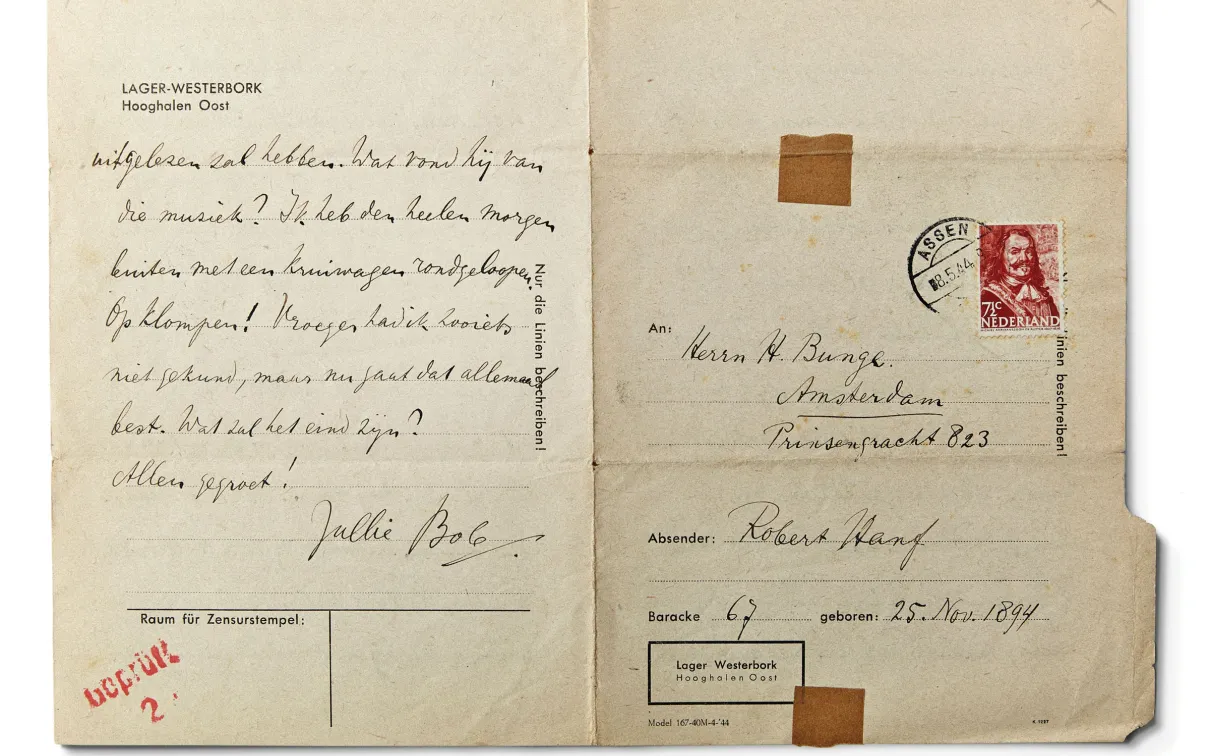 LAGER-WESTERBORK
Hooghalen Oost
uitgelezen zal hebben. Wat vond hij van
die muziek? Ik heb den heelen morgen
buiten met een kruiwagen rondgeloopen.
Op klompen! Vroeger had ik zooiets
niet gekund, maar nu gaat dat allemaal
best. Wat zal het eind zijn?
Allen gegroet!
Jullie Bob
Nur die Linien beschreiben!
Raum für Zensurstempel:
Geprüft
2
ASSEN
8.5.44
7½c
NEDERLAND
Linien beschreiben!
An:
Herrn H. Bunge.
Amsterdam
Prinsengracht 823
Absender: Robert Hanf
Baracke 67 geboren: 25. Nov. 1894
Lager Westerbork
Hooghalen Oost
Model 167-40M-4-'44